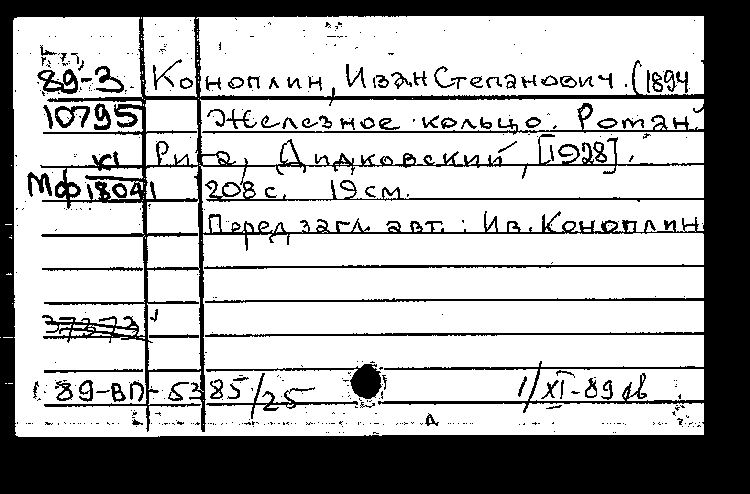 89-3 Коноплин, Иван Степанович. (1894
10795 Железное кольцо. Роман
кі Рига, Дидковский, [1928].
Мф 18041 208 с. 19 см.
Перед загл. авт.: Ив. Коноплин
37373
89-ВП-5385/25 1/XI-89